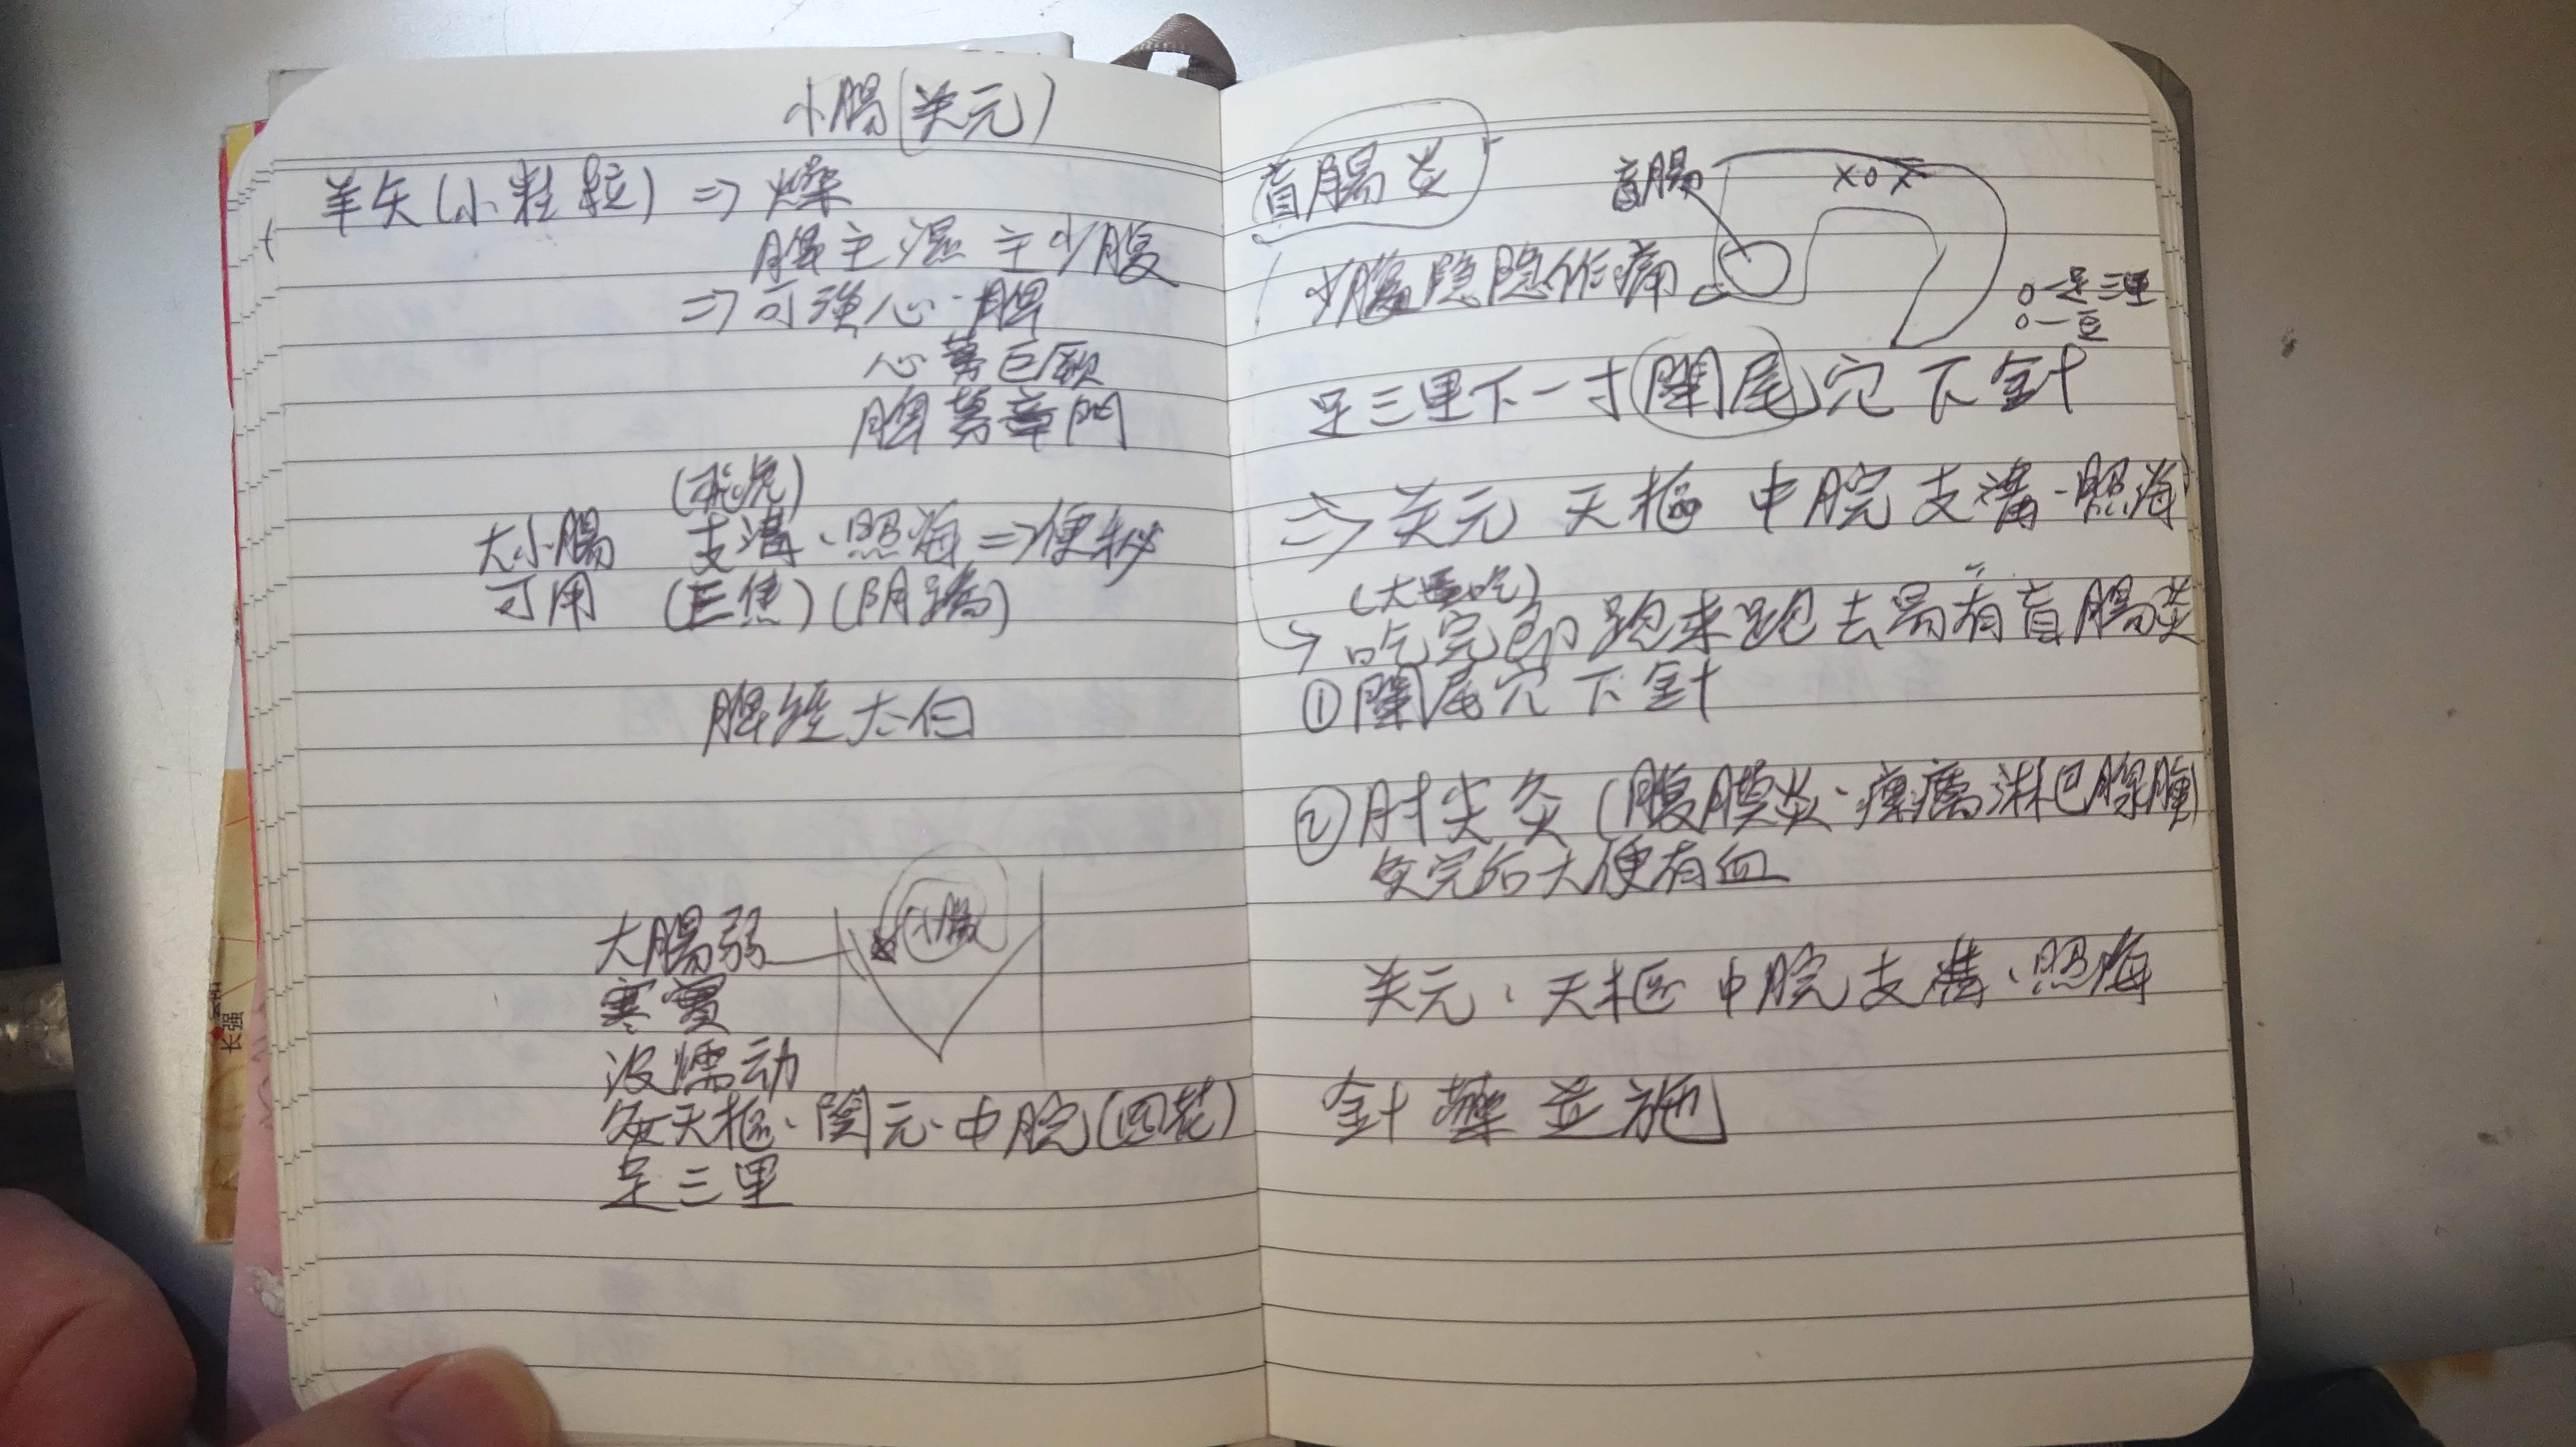 小腸(关元)
羊矢(小粒粒) ⇒ 燥
脾主濕 主少腹
⇒ 可強心、脾
心募巨厥
脾募章門
(飛虎)
大小腸 支溝、照海 ⇒ 便秘
可用 (三焦)(阴蹻)
脾經太白
小腸
大腸弱
寒實
没燸动
灸天樞、関元、中脘(四花)
足三里
长强
盲腸炎
盲腸
xox
少腹隐隐作痛
o—足三里
o—豆
足三里下一寸闌尾穴下針
⇒ 关元 天樞 中脘 支溝、照海
(大量吃)
→ 吃完即跑来跑去易有盲腸炎
① 闌尾穴下針
② 肘尖灸(腹膜炎、瘰癧淋巴腺腫)
灸完后大便有血
关元、天樞 中脘 支溝、照海
針藥並施